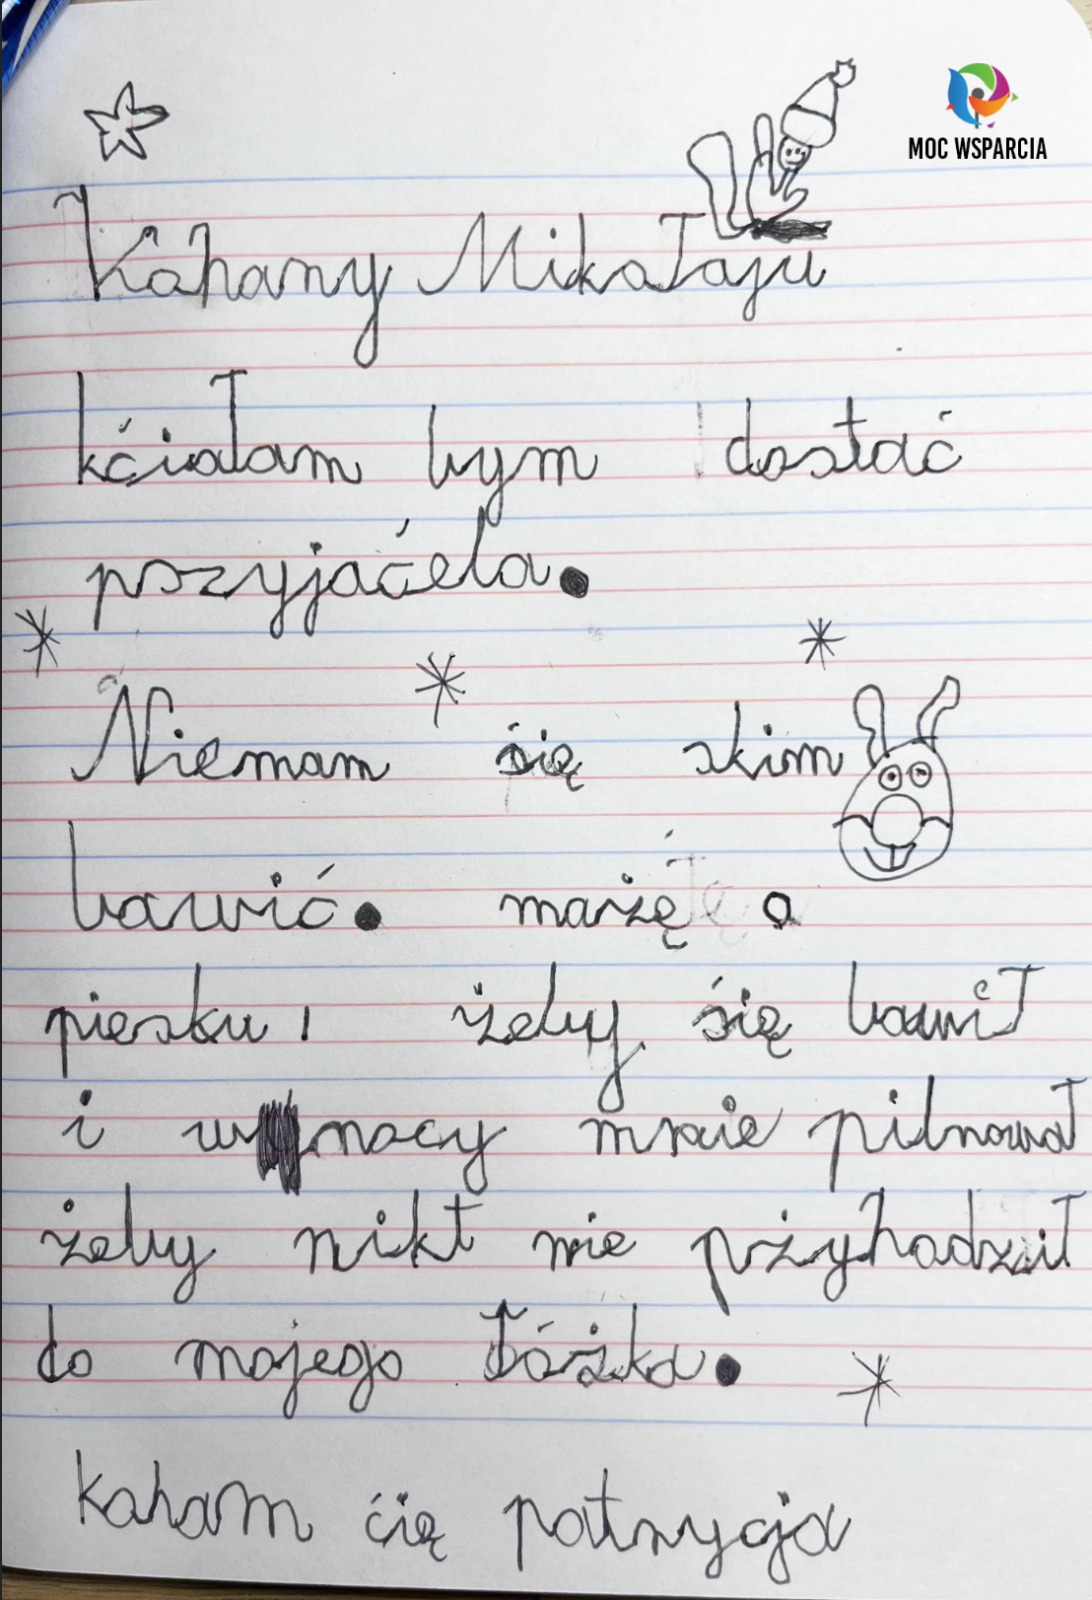 MOC WSPARCIA
Kahany Mikołaju
kćiałam bym dostać
pszyjaćela.
Niemam się skim
bawić. mażę o
piesku, żeby się bawił
i w nocy mnie pilnował
żeby nikt nie pżyhodził
do mojego łóżka.
kaham ćię patrycja